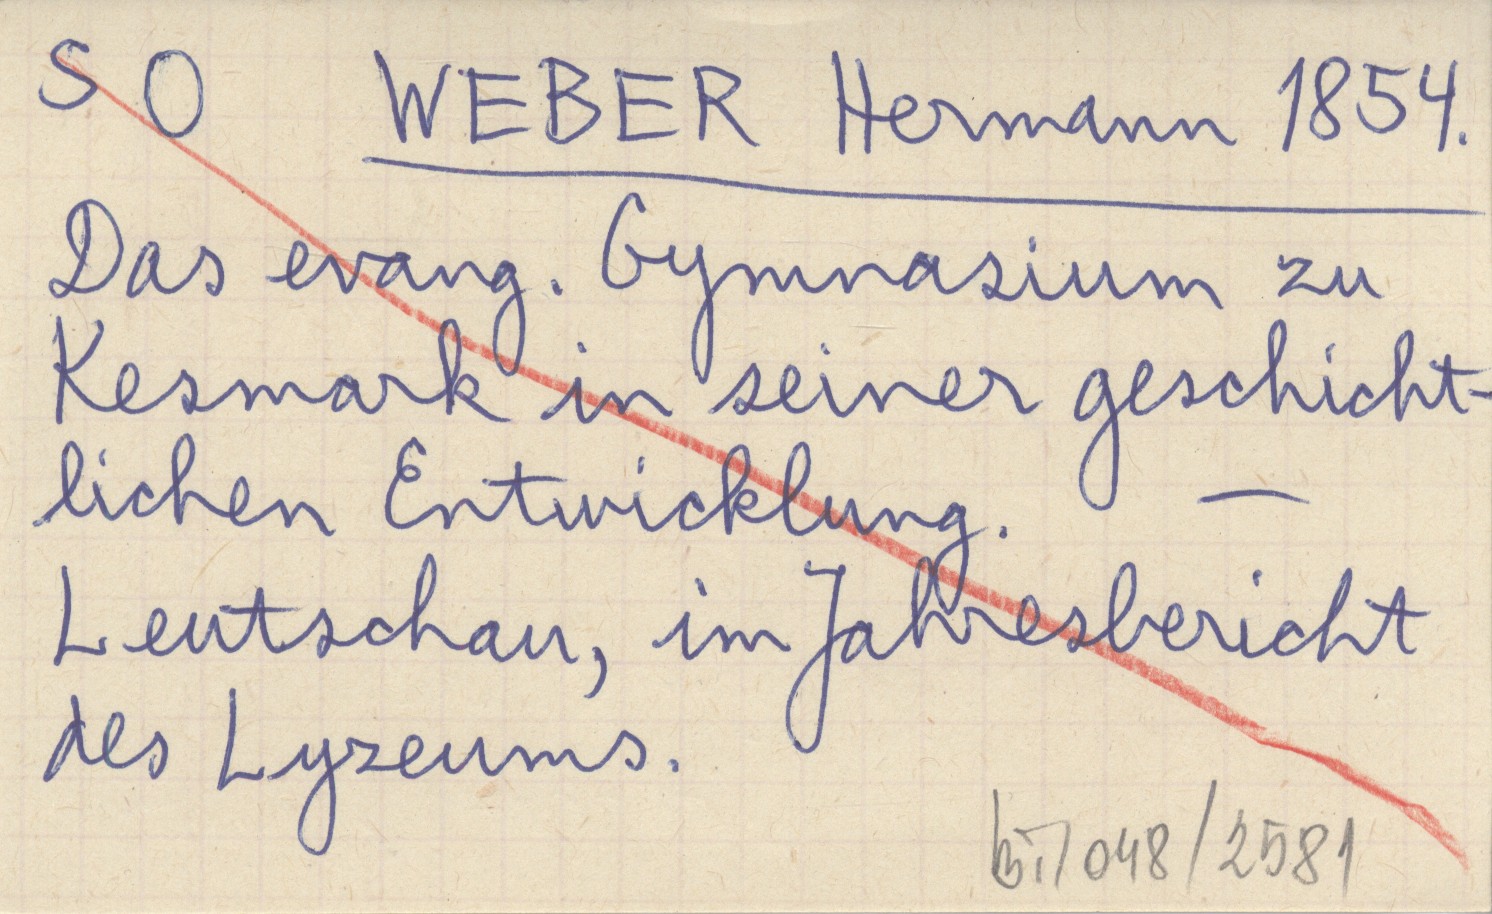 S O WEBER Hermann 1854.
Das evang. Gymnasium zu
Kesmark in seiner geschicht-
lichen Entwicklung. —
Leutschau, im Jahresbericht
des Lyzeums.
048/2581